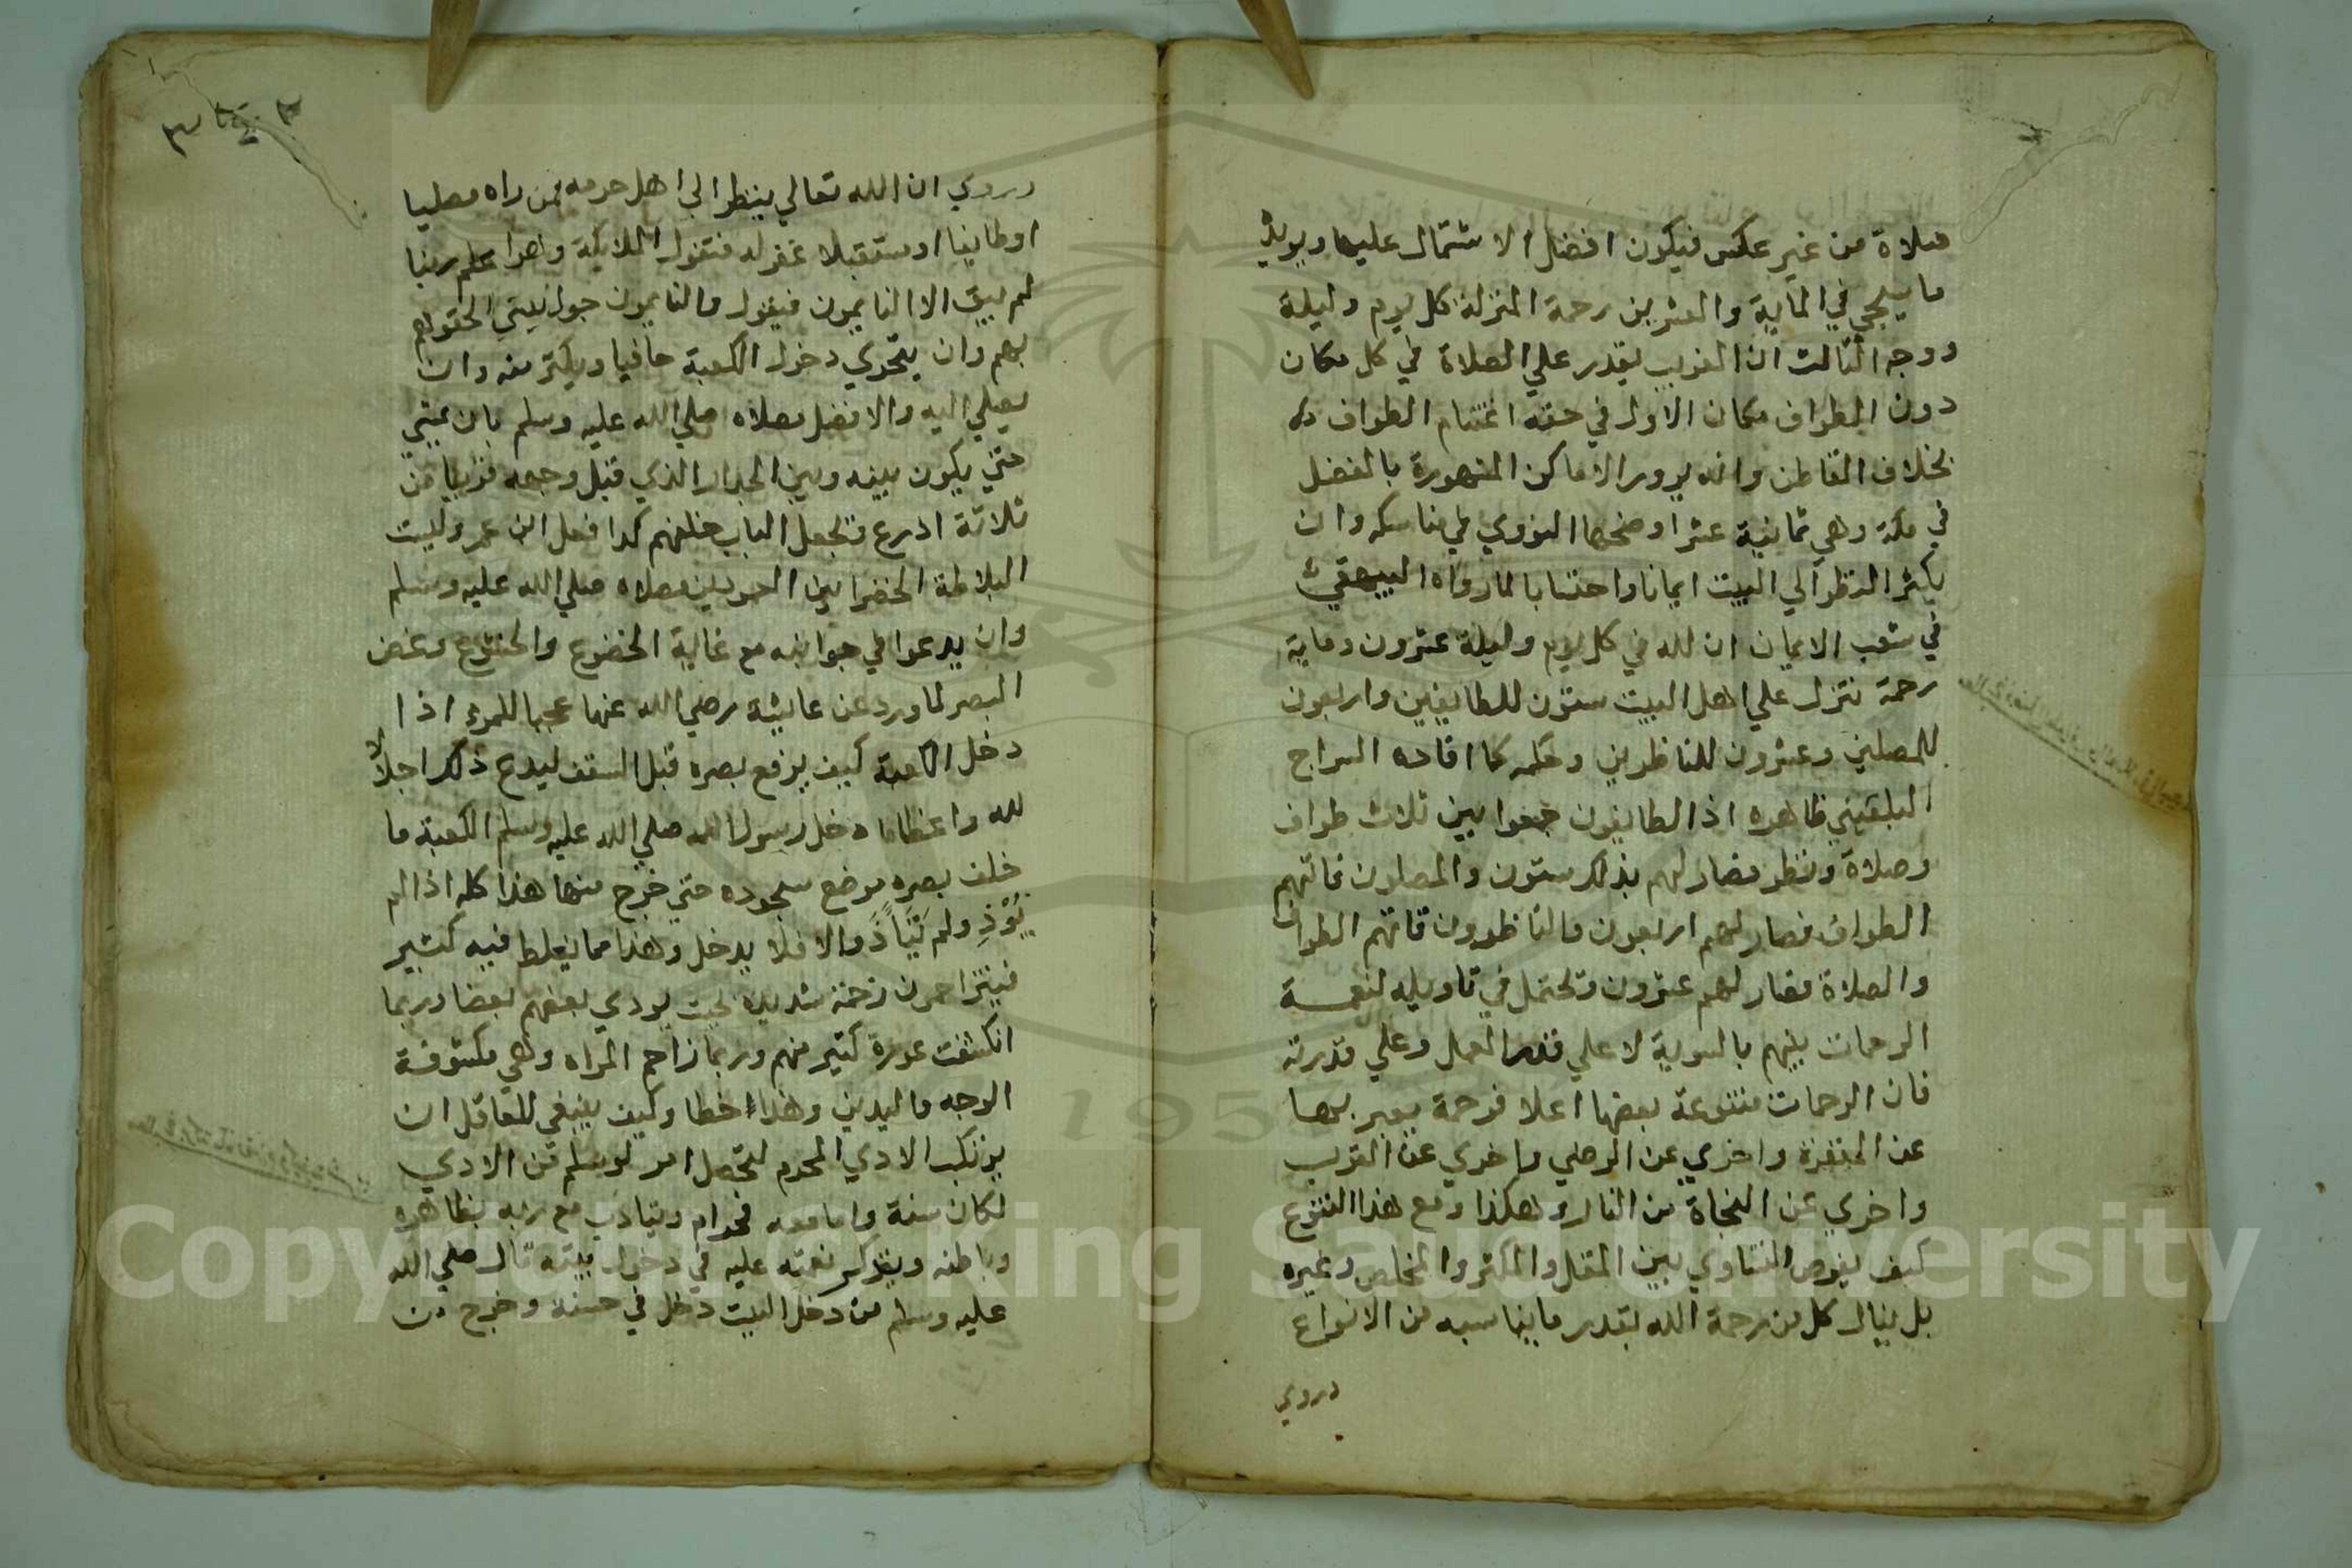 صلاة من غير عكس فيكون افضل الاشتمال عليها ويويد
ما يجي في الماية والعشرين رحمة المنزلة كل يوم وليلة
ووجه الثالث ان الغريب يقدر علي الصلاة في كل مكان
دون الطواف فكان الاولي في حقه اغتنام الطواف
بخلاف القاطن وانه يزور الاماكن المشهورة بالفضل
في مكة وهي ثمانية عشر اوضحها النووي في مناسكه وان
يكثر النظر الي البيت ايمانا واحتسابا لما رواه البيهقي
في شعب الايمان ان لله في كل يوم وليلة عشرون وماية
رحمة تنزل علي اهل البيت ستون للطايفين واربعون
للمصلين وعشرون للناظرين وحكمه كما افاده السراج
البلقيني ظاهره اذ الطايفون جمعوا بين ثلاث طواف
وصلاة ونظر فصار لهم بذلك ستون والمصلون فاتهم
الطواف فصار لهم اربعون والناظرون فاتهم الطواف
والصلاة فصار لهم عشرون وتحتمل في تاويله لنعمة
الرحمات بينهم بالسوية لا علي قدر العمل وعلي قدرته
فان الرحمات متنوعة بعضها اعلا فرحمة يعبر بها
عن المغفرة واخري عن الرضي واخري عن القرب
واخري عن النجاة من النار وهكذا ومع هذا التنوع
كيف يفرض التساوي بين المقل والمكثر والمخلص وغيره
بل ينال كل من رحمة الله بقدر ما يناسبه من الانواع
وروي
وروي ان الله تعالي ينظر الي اهل حرمه فمن راه مصليا
او طايفا او مستقبلا غفر له فتقول الملايكة وهو اعلم ربنا
لم يبق الا النايمون فيقول والنايمون حول بيتي الحقوهم
بهم وان يتحري دخول الكعبة حافيا ويكثر منه وان
يصلي اليه والافضل مصلاه صلي الله عليه وسلم بان يمشي
حتي يكون بينه وبين الجدار الذي قبل وجهه قريبا من
ثلاثة اذرع فتجعل الباب خلفهم كذا فعل ابن عمر وليست
البلاطة الخضرا بين العمودين مصلاه صلي الله عليه وسلم
وان يدعوا في جوانبه مع غاية الخضوع والخشوع وغض
البصر لما ورد عن عايشة رضي الله عنها عجبا للمرء اذا
دخل الكعبة كيف يرفع بصره قبل السقف ليدع ذلك اجلالا
لله واعظاما دخل رسول الله صلي الله عليه وسلم الكعبة ما
خلف بصره موضع سجوده حتي خرج منها هذا كله اذا لم
يُوْذِ ولم يتَأذَّ والا فلا يدخل وهذا مما يغلط فيه كثير
فيتزاحمون زحمة شديدة بحيث يوذي بعضهم بعضا وربما
انكشفت عورة كثير منهم وربما زاحم المراه وهي مكشوفة
الوجه واليدين وهذا خطا وكيف ينبغي للعاقل ان
يرتكب الاذي المحرم لتحصل امر لو سلم من الاذي
لكان سنة واما معه فحرام ويتادب مع ربه بظاهره
وباطنه ويتذكر نعمته عليه في دخول بيته قال صلي الله
عليه وسلم من دخل البيت دخل في حسنة وخرج من
Copyright © King Saud University